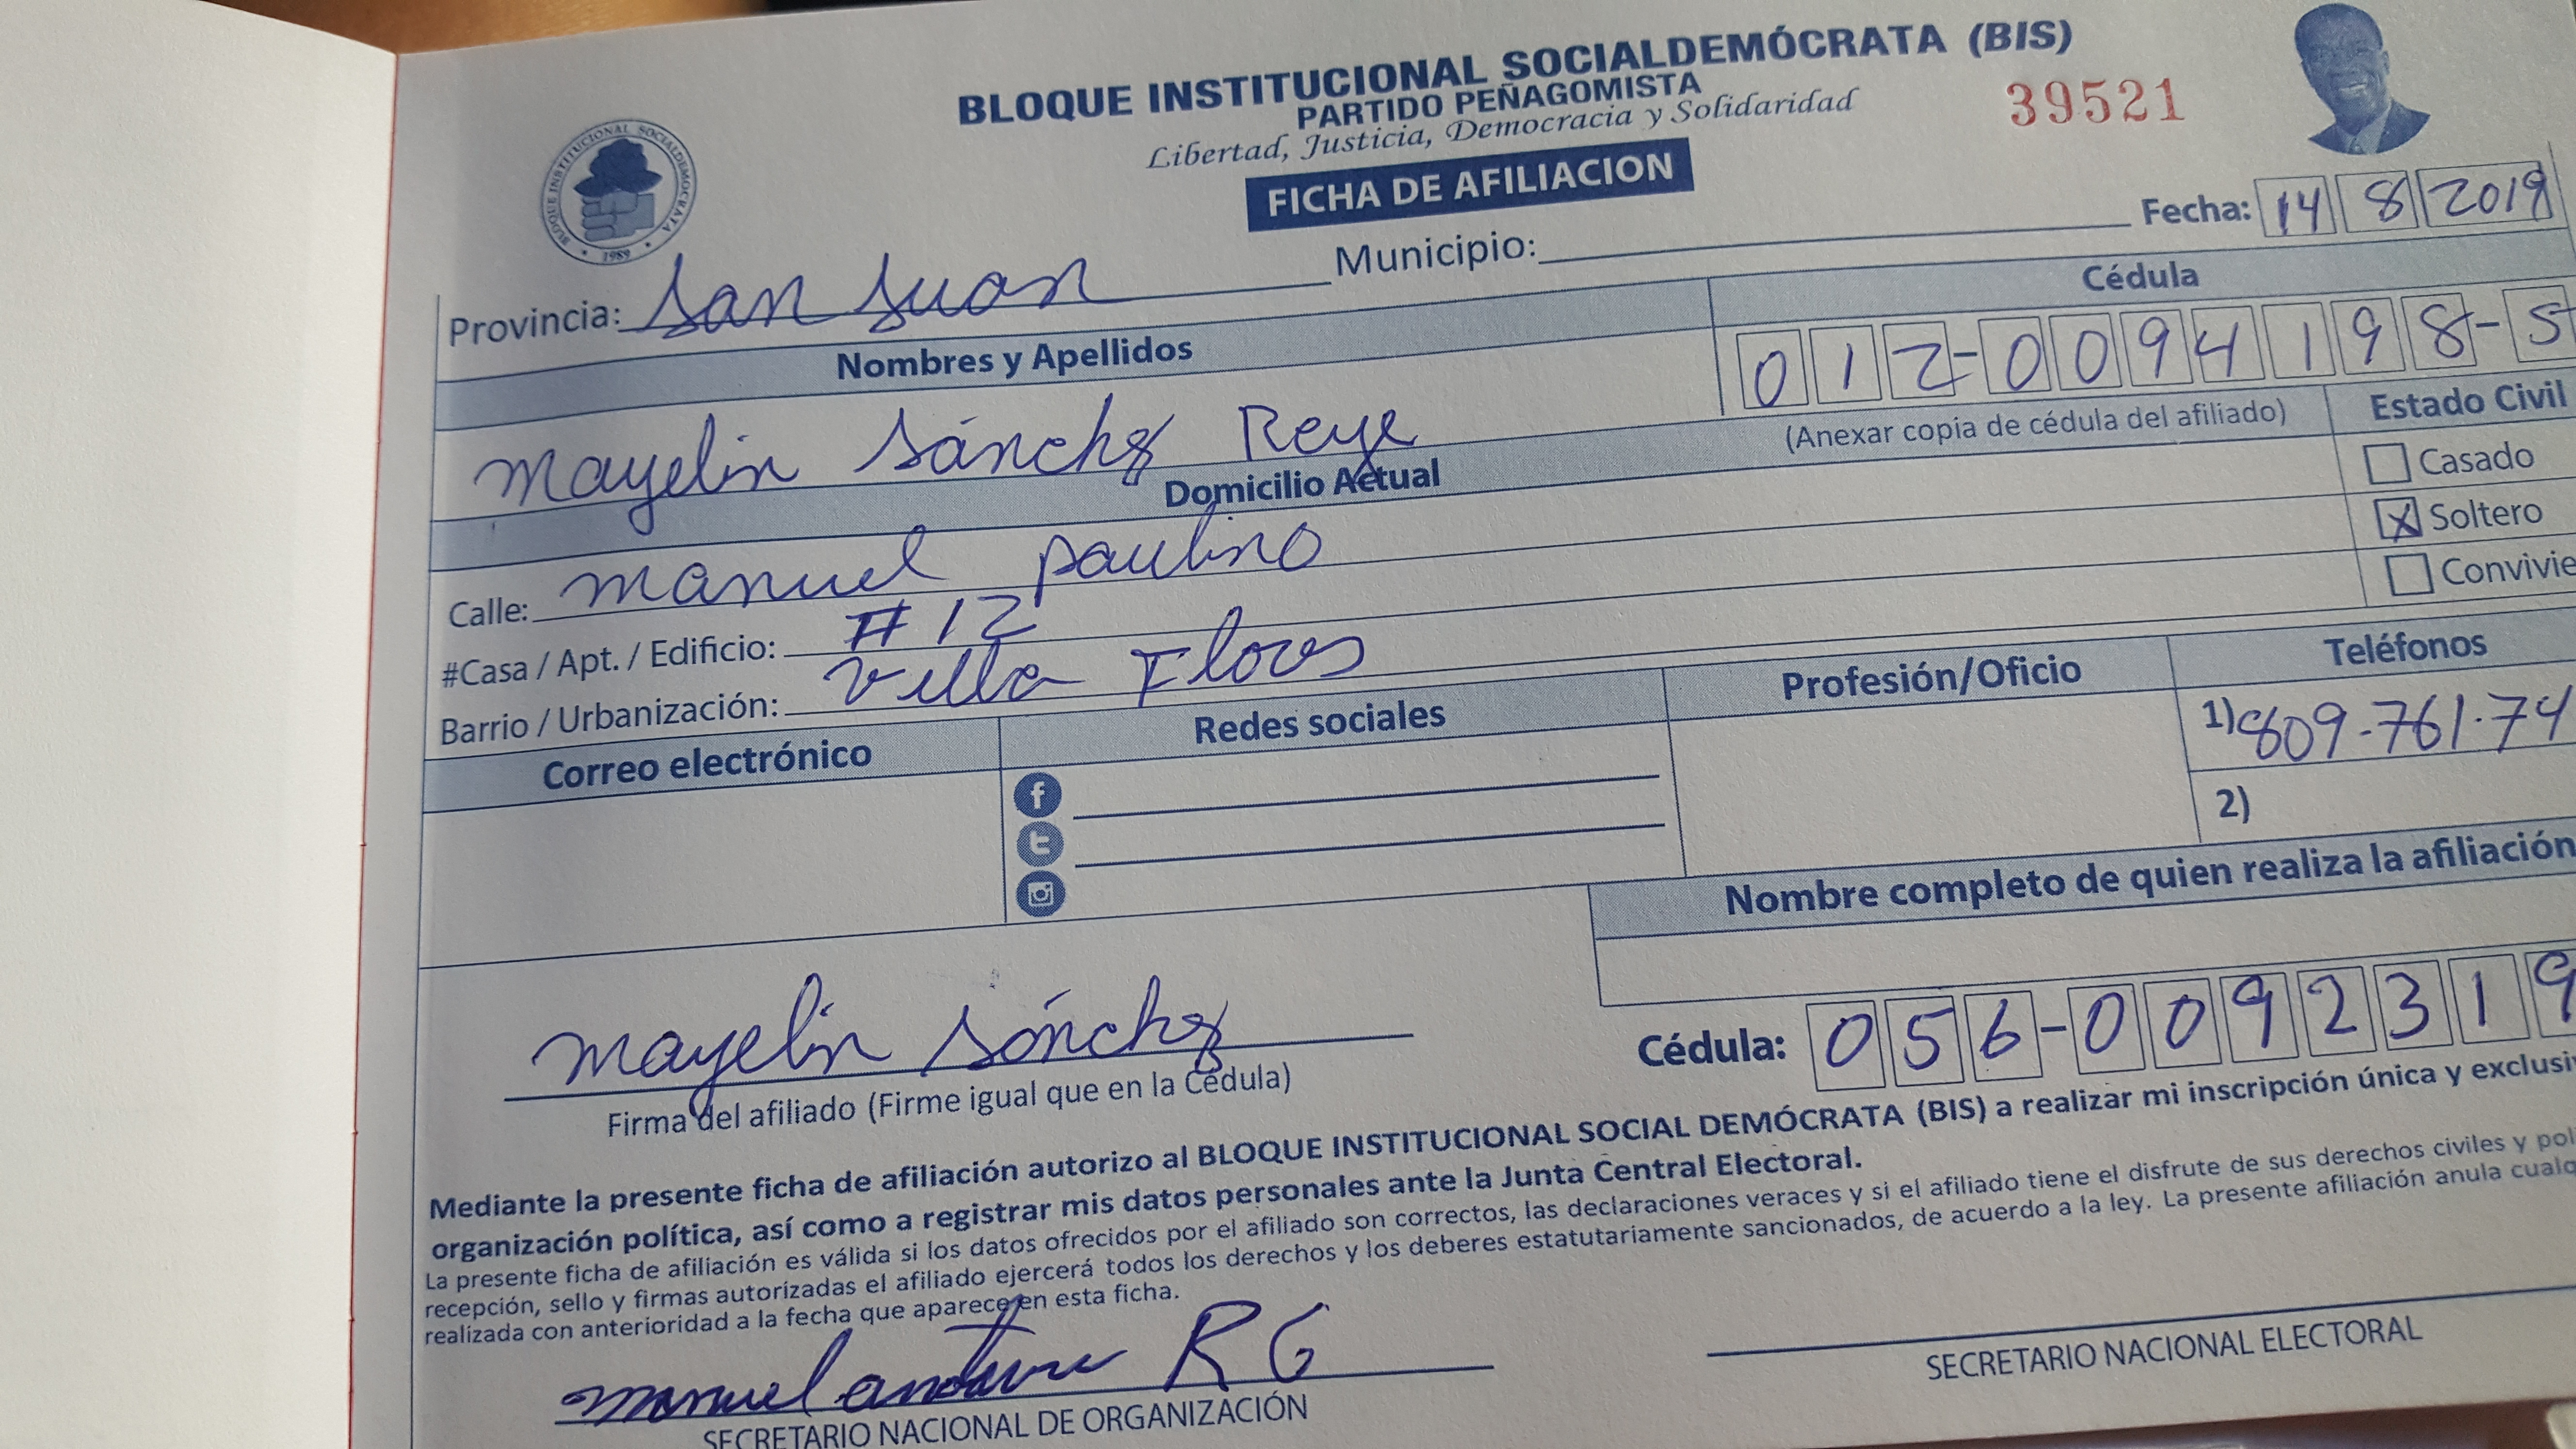 BLOQUE INSTITUCIONAL SOCIALDEMÓCRATA (BIS)
PARTIDO PEÑAGOMISTA
Libertad, Justicia, Democracia y Solidaridad
39521
FICHA DE AFILIACION
BLOQUE INSTITUCIONAL SOCIALDEMOCRATA
1989
Fecha: 14 8 2019
Provincia: San Juan Municipio:
Nombres y Apellidos
Cédula
012-0094198-5
Mayelin Sánchez Reye
(Anexar copia de cédula del afiliado)
Estado Civil
Casado
X Soltero
Convivie
Domicilio Actual
Calle: manuel paulino
#Casa / Apt. / Edificio: #12
Barrio / Urbanización: Villa Flores
Correo electrónico
Redes sociales
Profesión/Oficio
Teléfonos
1) 809-761-74
2)
Nombre completo de quien realiza la afiliación
Cédula: 056-0092319
Mayelin Sánchez
Firma del afiliado (Firme igual que en la Cédula)
Mediante la presente ficha de afiliación autorizo al BLOQUE INSTITUCIONAL SOCIAL DEMÓCRATA (BIS) a realizar mi inscripción única y exclusi
organización política, así como a registrar mis datos personales ante la Junta Central Electoral.
La presente ficha de afiliación es válida si los datos ofrecidos por el afiliado son correctos, las declaraciones veraces y si el afiliado tiene el disfrute de sus derechos civiles y pol
recepción, sello y firmas autorizadas el afiliado ejercerá todos los derechos y los deberes estatutariamente sancionados, de acuerdo a la ley. La presente afiliación anula cualq
realizada con anterioridad a la fecha que aparece en esta ficha.
manuel R G
SECRETARIO NACIONAL DE ORGANIZACIÓN
SECRETARIO NACIONAL ELECTORAL